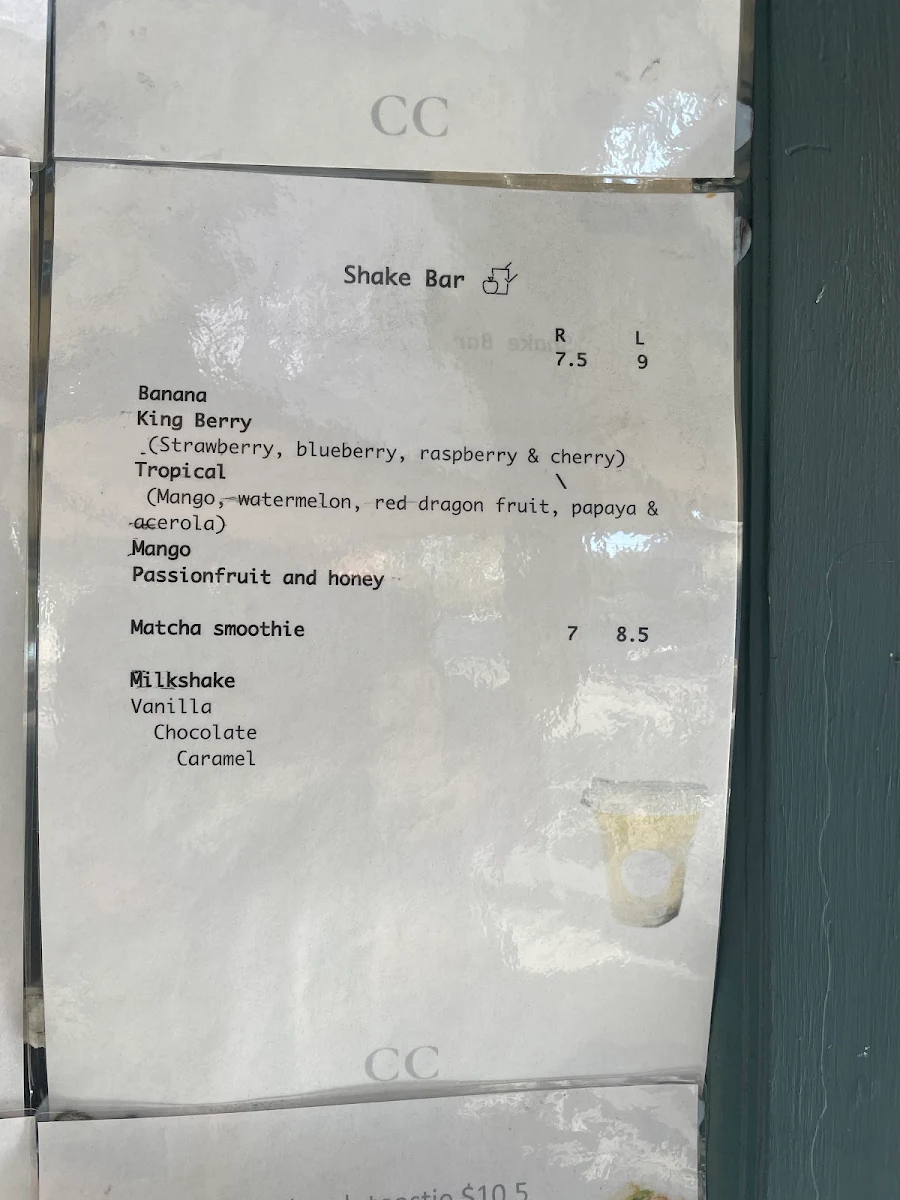 CC
Shake Bar
R L
7.5 9
Banana
King Berry
(Strawberry, blueberry, raspberry & cherry)
Tropical
(Mango, watermelon, red dragon fruit, papaya &
acerola)
Mango
Passionfruit and honey
Matcha smoothie 7 8.5
Milkshake
Vanilla
Chocolate
Caramel
CC
$10.5